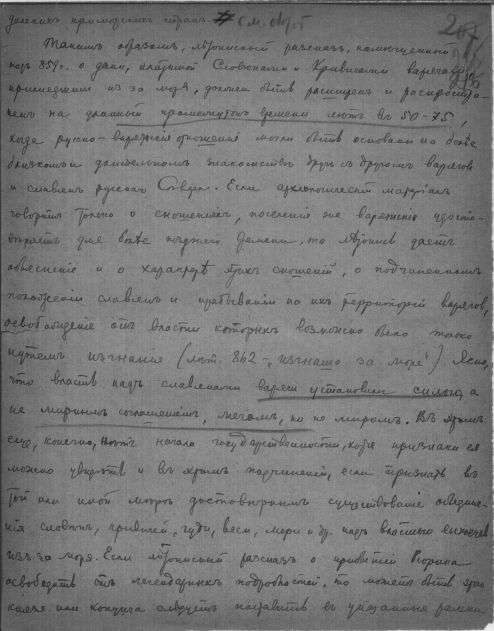 далекихъ приморскихъ странъ. # см. оборот
207
Такимъ образомъ, лѣтописный разсказъ, помѣщенный
подъ 859 г. о дани, платимой Словенами и Кривичами варягамъ,
пришедшим из за моря, должен быть расширен и распростра-
ненъ на длинный промежутокъ времени лѣтъ въ 50-75,
когда русско-варяжскія отношенія могли быть основаны на болѣе
близкомъ и длительномъ знакомствѣ другъ съ другомъ варягов
и славянъ русскаго Сѣвера. Если археологическій матеріалъ
говоритъ только о сношеніяхъ, поселенія же варяжскія удосто-
вѣряетъ для болѣе поздняго времени, то лѣтопись даетъ
объясненіе и о характерѣ этихъ сношеній, о подчиненномъ
положеніи славянъ и пребываніи на ихъ территоріи варяговъ,
освобожденіе отъ власти которыхъ возможно было только
путемъ изгнанія (лѣт. 862 - "изгнаша за море"). Ясно,
что власть надъ славянами варяги установили силою, а
не мирнымъ соглашеніемъ, мечомъ, но не миромъ. Въ этомъ
еще, конечно, нѣтъ начала государственности, хотя признаки ея
можно увидѣть и въ этомъ подчиненіи, если признать въ
той или иной мѣрѣ достовѣрнымъ существованіе объедине-
нія словенъ, кривичей, чуди, веси, мери и др. подъ властью
изъ за моря. Если лѣтописный разсказъ о прибытіи Рюрика
освободить отъ легендарныхъ подробностей, то можетъ быть
князя или конунга слѣдуетъ поставить въ указанныя рамки